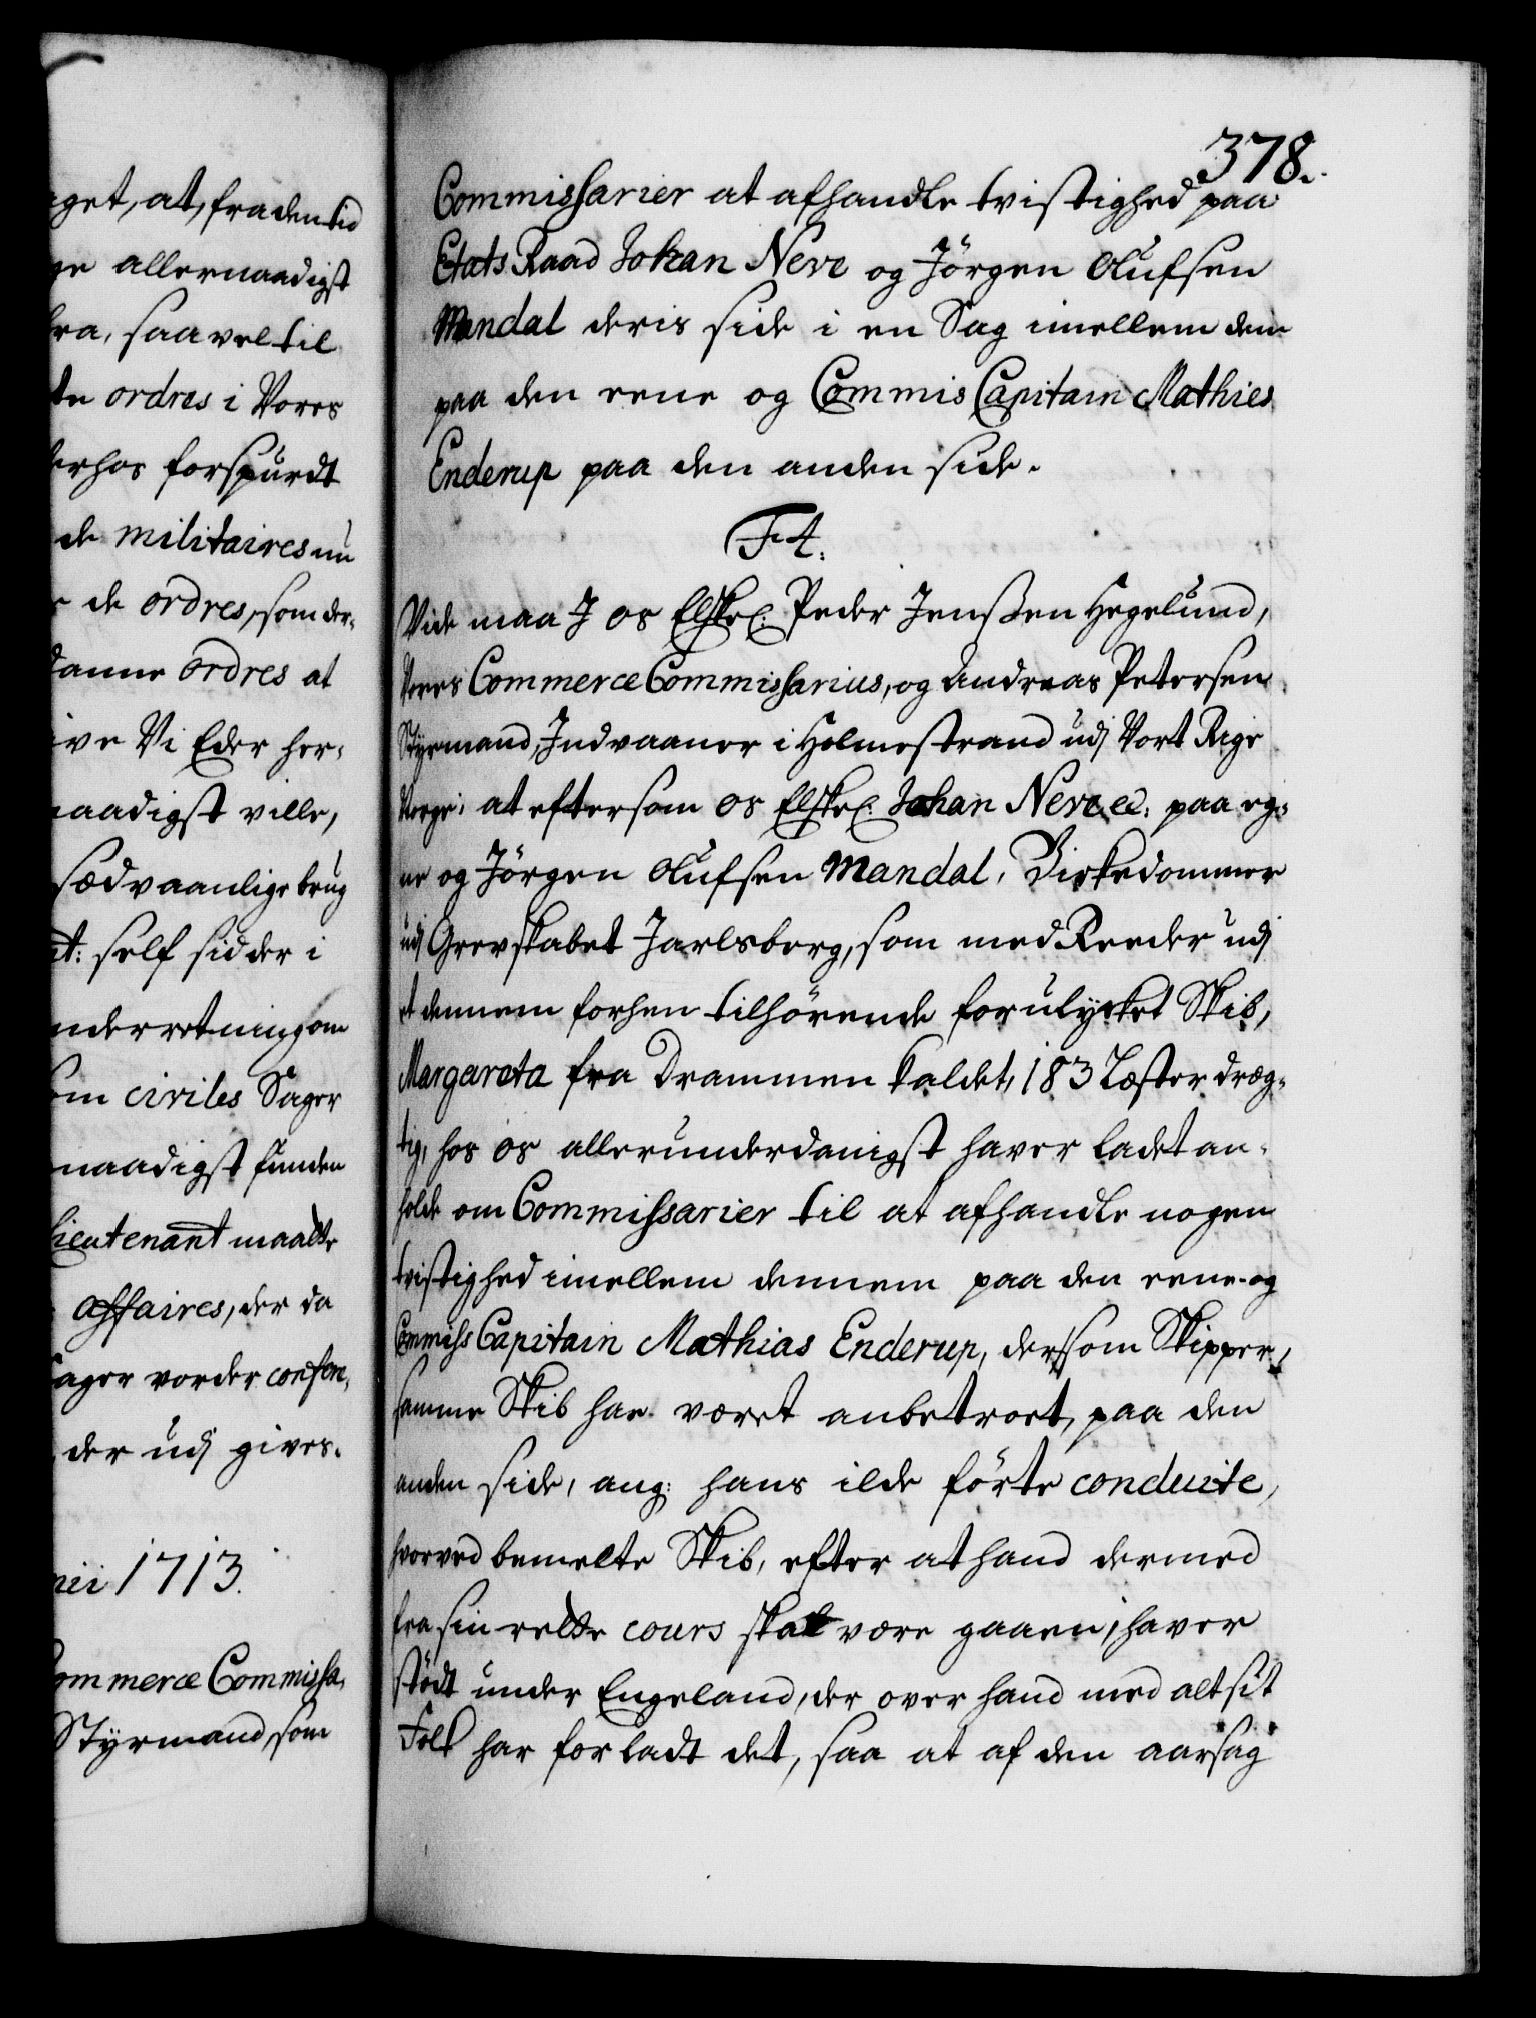 get, at, fra den tid
ge allernaadigst
fra, saavel til
te ordres i Vores
derhos forspurdt
de militaires nu
de ordres, som der-
danne ordres at
ive Vi Eder her-
naadigst ville,
sædvaanlige brug
nt: self sidder i
nderretning om
som civiles Sager
naadigst funden
Lieutenant maatte
affaires, der da
ager vorder confen,
der udj gives.
nii 1713.
Commerce Commissa,
Styrmand, som
378.
Commissarier at afhandle tvistighed paa
Etats Raad Johan Neve og Jörgen Olufsen
Mandal deris side i en Sag imellem dem
paa den eene og Commis Capitain Mathies
Enderup paa den anden side.
F 4.
Vide maa J os Elskel. Peder Jenssen Hegelund,
Vores Commerce Commissarius, og Andreas Petersen
Styrmand, Indvaaner i Holmestrand udj Vort Rige
Norge; at eftersom os Elskel. Johan Neve etc. paa eg-
ne og Jörgen Olufsen Mandal, Birkedommer
udj Grevskabet Jarlsberg, som med Reeder udj
et dennem forhen tilhörende forulycket Skib,
Margareta fra Drammen kaldet, 183 Læster dræg-
tig, hos os allerunderdanigst haver ladet an-
holde om Commissarier til at afhandle nogen
tvistighed imellem dennem paa den eene og
Commiss Capitain Mathias Enderup, der som Skipper,
samme Skib har været anbetroet, paa den
anden side, ang: hans ilde förte conduite,
hvorved bemelte Skib, efter at hand dermed
fra sin rette cours skal være gaaen, haver
stödt under Engeland, der over hand med alt sit
Folk har forladt det, saa at af den aarsag